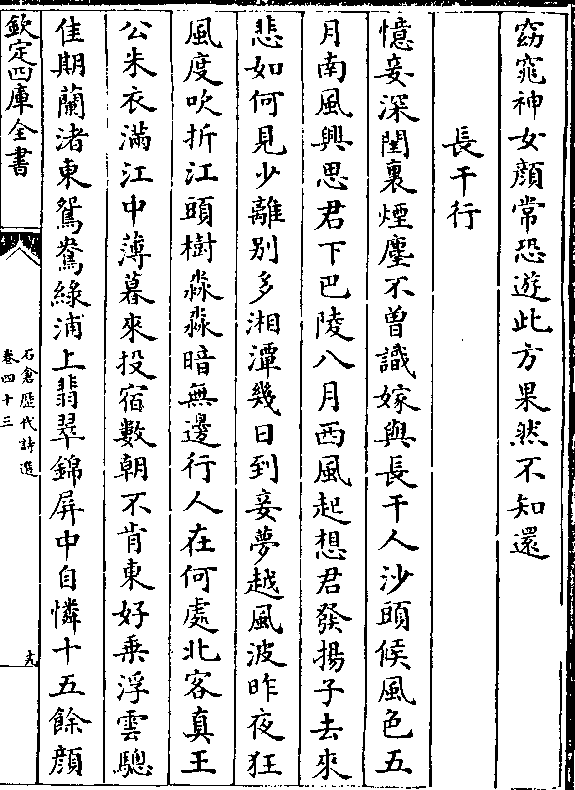 窈窕神女顔常恐遊此方果然不知還
長干行
憶妾深閨裏煙塵不曽識嫁與長干人沙頭候風色五
月南風興思君下巴陵八月西風起想君發揚子去來
悲如何見少離别多湘潭幾日到妾夢越風波昨夜狂
風度吹折江頭樹淼淼暗無邊行人在何處北客真王
公朱衣滿江中薄暮來投宿數朝不肯東好乗浮雲驄
佳期蘭渚東鴛鴦緑浦上翡翠錦屏中自憐十五餘顔
欽定四庫全書
石倉歴代詩選
卷四十三
十九